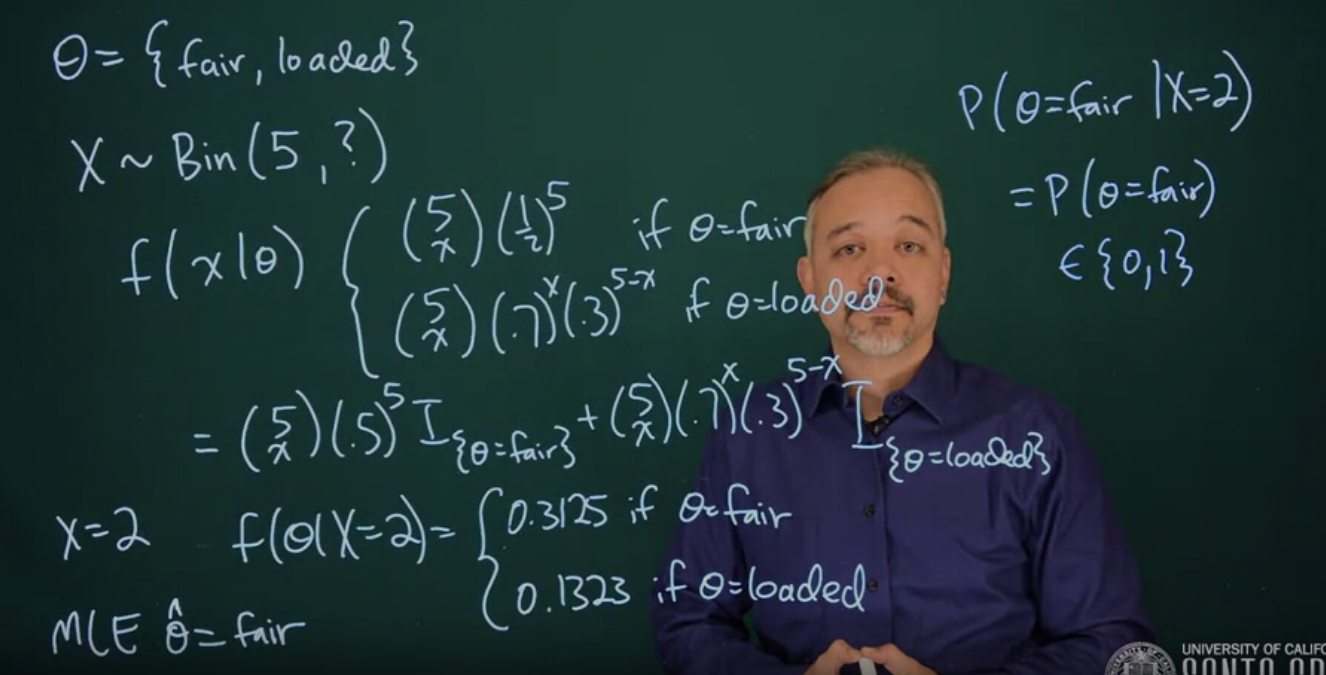 θ = {fair, loaded}
X ~ Bin(5, ?)
f(x|θ) { (5 x)(1/2)^5 if θ=fair
(5 x)(.7)^x(.3)^5-x if θ=loaded
= (5 x)(.5)^5 I_{θ=fair} + (5 x)(.7)^x(.3)^5-x I_{θ=loaded}
X=2 f(θ|X=2) = { 0.3125 if θ=fair
0.1323 if θ=loaded
MLE θ̂ = fair
P(θ=fair | X=2)
= P(θ=fair)
∈ {0,1}
UNIVERSITY OF CALIFO